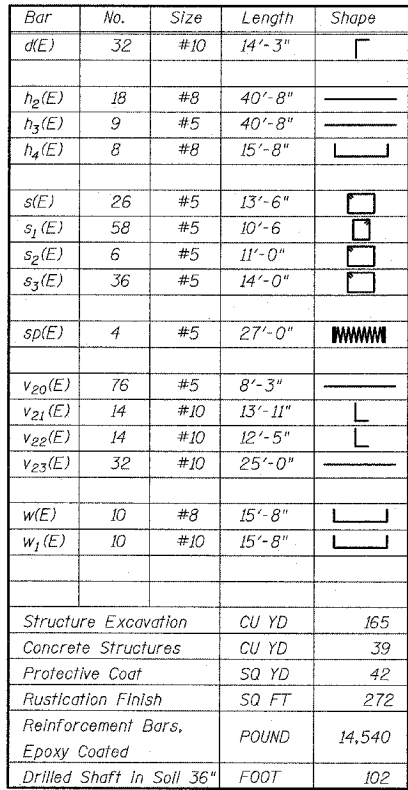 Bar No. Size Length Shape
d(E) 32 #10 14'-3"
h2(E) 18 #8 40'-8"
h3(E) 9 #5 40'-8"
h4(E) 8 #8 15'-8"
s(E) 26 #5 13'-6"
s1(E) 58 #5 10'-6
s2(E) 6 #5 11'-0"
s3(E) 36 #5 14'-0"
sp(E) 4 #5 27'-0"
v20(E) 76 #5 8'-3"
v21(E) 14 #10 13'-11"
v22(E) 14 #10 12'-5"
v23(E) 32 #10 25'-0"
w(E) 10 #8 15'-8"
w1(E) 10 #10 15'-8"
Structure Excavation CU YD 165
Concrete Structures CU YD 39
Protective Coat SQ YD 42
Rustication Finish SQ FT 272
Reinforcement Bars,
Epoxy Coated POUND 14,540
Drilled Shaft in Soil 36" FOOT 102